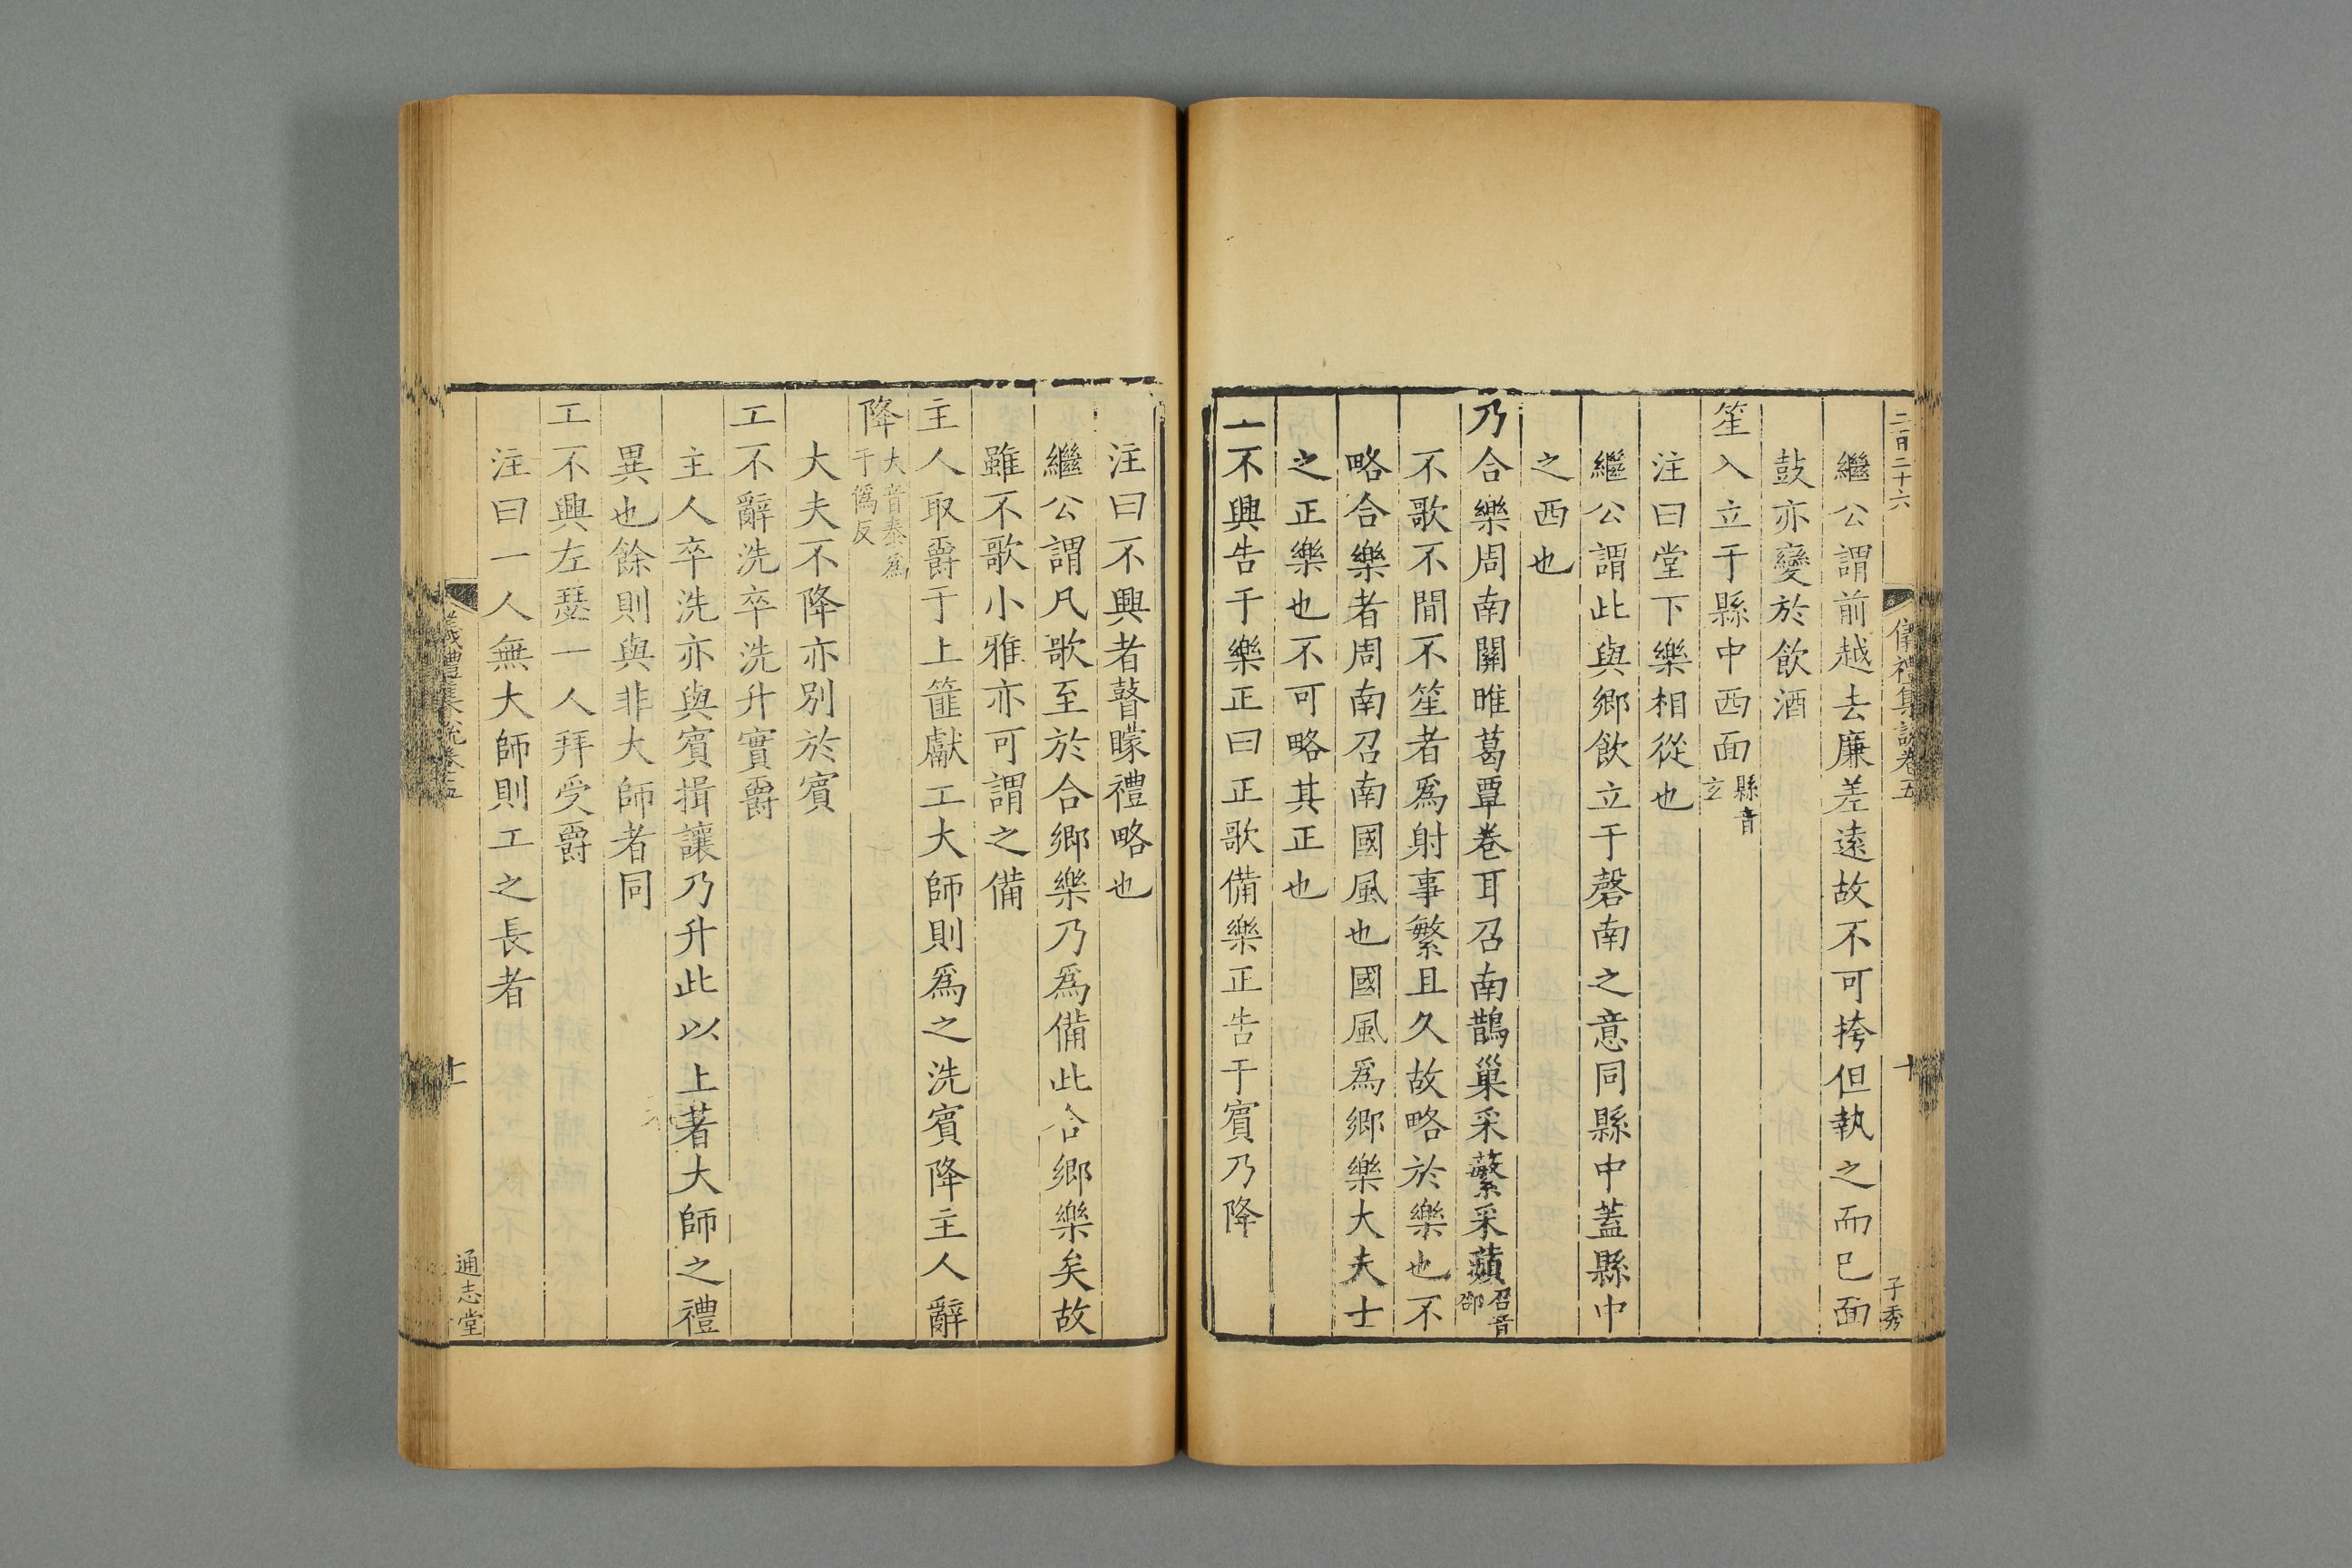 二百二十六
儀禮集說卷五
十
子秀
繼公謂前越去廉差遠故不可挎但執之而已面
鼓亦變於飲酒
笙入立于縣中西面縣音玄
注曰堂下樂相從也
繼公謂此與鄉飲立于磬南之意同縣中蓋縣中
之西也
乃合樂周南關雎葛覃卷耳召南鵲巢采蘩采蘋召音邵
不歌不間不笙者爲射事繁且久故略於樂也不
略合樂者周南召南國風也國風爲鄉樂大夫士
之正樂也不可略其正也
工不興告于樂正曰正歌備樂正告于賓乃降
注曰不興者瞽矇禮略也
繼公謂凡歌至於合鄉樂乃爲備此合鄉樂矣故
雖不歌小雅亦可謂之備
主人取爵于上篚獻工大師則爲之洗賓降主人辭
降大音泰爲于僞反
大夫不降亦別於賓
工不辭洗卒洗升實爵
主人卒洗亦與賓揖讓乃升此以上著大師之禮
異也餘則與非大師者同
工不興左瑟一人拜受爵
注曰一人無大師則工之長者
儀禮集說卷五
十一
通志堂